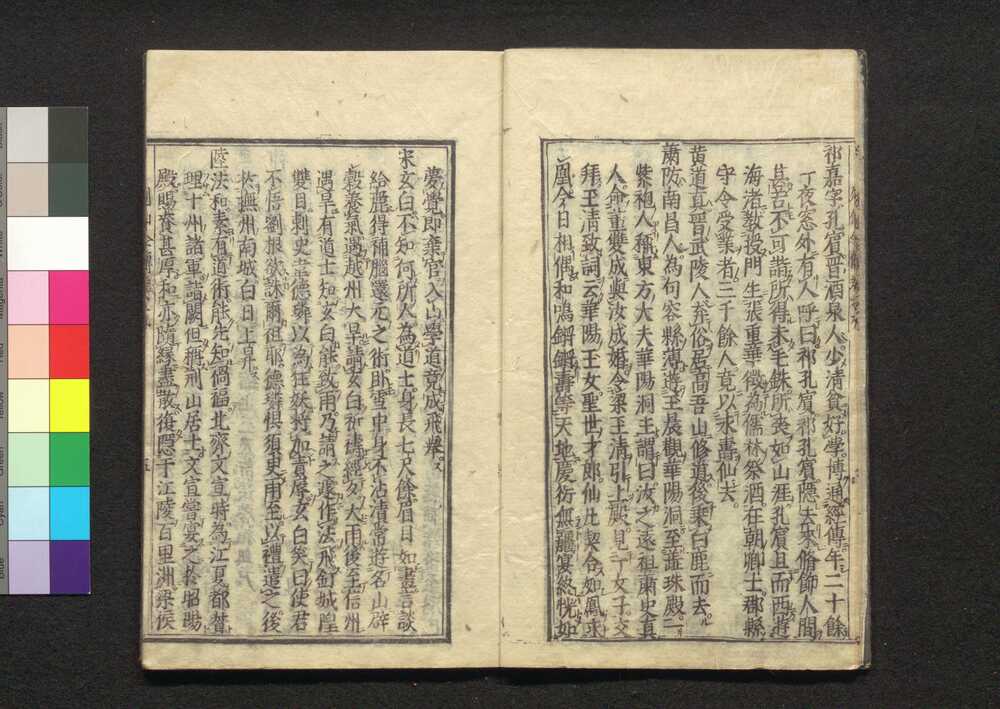 祁嘉字孔賓晉酒泉人少清貧好學博通經傳年二十餘
丁夜窓外有人呼曰祁孔賓祁孔賓隱去來脩飾人間
甚苦不可諧所得未毛銖所喪如山涯孔賓旦而西遊
海渚教授門生張重華徵為儒林祭酒在朝卿士郡縣
守令受業者二千餘人竟以永壽仙去
黄道真晋武陵人弃俗居高吾山修道後乗白鹿而去
蕭防南昌人為句容縣薄遊王晨觀華陽洞至蘂珠殿一
紫袍人稱東方大夫華陽洞主謂曰汝之遠祖蕭史真
人命重變成與汝成婚令梁王清引上殿見二女子交
拜王清致詞云華陽王女聖世才郎仙此契合如鳳求
凰今日相偶和鳴鏘鏘壽等天地慶衍無疆宴終恍如
夢覺即棄官入山學道竟成飛舉
宋玄白不知何所人為道士身長七尺餘眉目如畫言談
給麗得補腦還元之術卧雪中身不沾漬常遊名山辟
穀養氣過越州大旱請玄白祈禱經夕大雨後至信州
遇旱有道士知玄白能致雨乃請之遂作法飛釘城隍
雙目刺史韋德璘以為狂妖將加責辱玄白笑曰使君
不悟劉根欲誅爾祖耶德璘惧須史雨至以禮遣之後
於撫州南城白日上昇
陸法和素有道術能先知禍福北齊文宣時為江夏都督
理十州諸軍詣闕但稱荊山居士文宣嘗宴之於昭陽
殿賜賚甚厚和亦隨緣盡散復隱于江陵百里洲梁侯